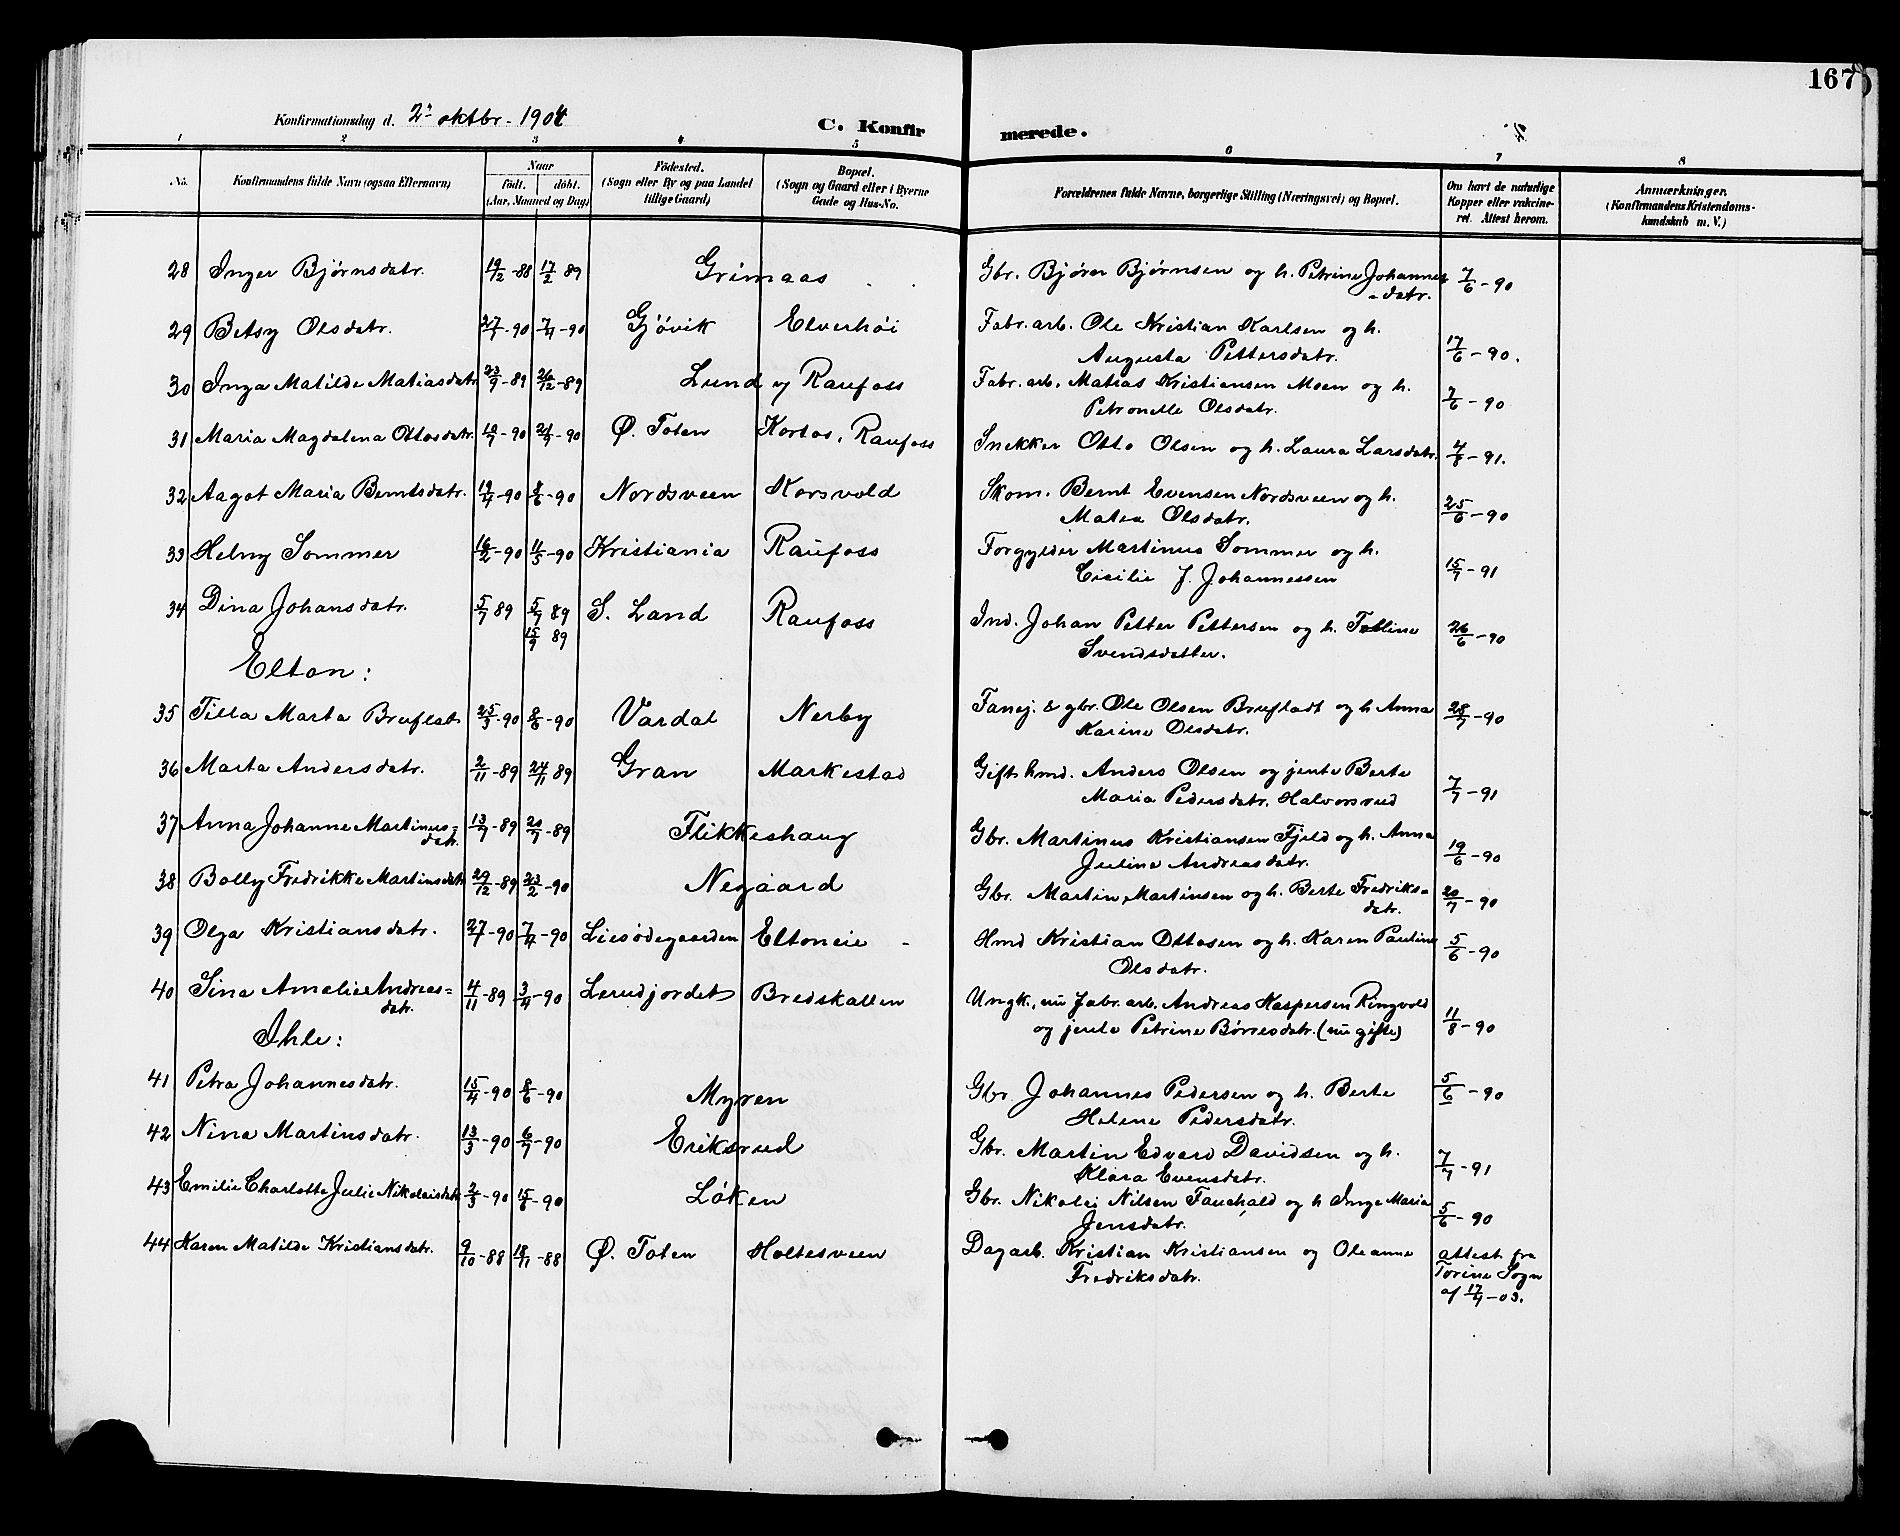 167
Konfirmationsdag d. 2n oktbr. 1904
C. Konfirmerede.
1 2 3 4 5 6 7 8
No. Konfirmandens fulde Navn (ogsaa Efternavn) Naar födt. döbt. (Aar, Maaned og Dag) Födested. (Sogn eller By og paa Landet tillige Gaard) Bopæl. (Sogn og Gaard eller i Byerne Gade og Hus-No. Forældrenes fulde Navne, borgerlige Stilling (Næringsvei) og Bopæl. Om havt de naturlige Kopper eller vakcineret. Attest herom. Anmærkninger. (Konfirmandens Kristendomskundskab m. V.)
28 Inger Bjørnsdatr. 19/2-88 17/2 89 Grimaas Gbr. Bjørn Bjørnsen og h. Petrine Johannes- 7/6-90
datr.
29 Betsy Olsdatr. 27/1-90 7/4-90 Gjøvik Elverhöi Fabr. arb. Ole Kristian Karlsen og h.
Augusta Pettersdatr. 17/6-90.
30 Inga Matilde Matiasdatr. 23/9-89 26/12-89 Lund v/ Raufoss Fabr. arb. Matias Kristiansen Moen og h.
Petronelle Olsdatr. 7/6-90
31 Maria Magdalena Ottosdatr. 10/7-90 21/7-90 Ø. Toten Kortos, Raufoss Snekker Otto Olsen og h. Laura Larsdatr. 4/8-91.
32 Aagot Maria Berntsdatr. 19/4-90 8/6-90 Nordsveen Korsvold Skom. Bernt Evensen Nordsveen og h.
Matea Olsdatr. 25/6-90
33 Helny Sommer 16/2-90 11/5-90 Kristiania Raufoss Forgylder Martinus Sommer og h.
Cicilie J. Johannessen 15/7-91
34 Dina Johansdatr. 5/7 89 5/7 89 S. Land Raufoss Ind. Johan Petter Pettersen og h. Talline 26/6-90
15/9 89 Svendsdatter.
Elton:
35 Tilla Marta Bruflat 25/3-90 8/6-90 Vardal Nerby Fanej. & gbr. Ole Olsen Brufladt og h. Anna 28/7-90
Karine Olsdatr.
36 Marta Andersdatr. 2/11-89 24/11 89 Gran Markestad Gift hmd. Anders Olsen og jente Berte
Maria Pedersdatr. Halvorsrud 7/7-91
37 Anna Johanne Martinus- 13/7-89 20/7-89 Flikkeshaug Gbr. Martinus Kristiansen Fjeld og h. Anna
datr. Juline Andreasdatr. 19/6-90
38 Bolly Fredrikke Martinsdatr 29/12-89 23/2-90 Negaard Gbr. Martin Martinsen og h. Berte Fredriks- 20/7-90
datr.
39 Olga Kristiansdatr. 27/1-90 7/4-90 Liesödegaarden Eltoneie Hmd Kristian Ottosen og h. Karen Pauline 5/6-90
Olsdatr.
40 Sina Amalie Andreas= 4/11-89 3/4-90 Lerudjordet Bredskallen Ungk., nu fabr. arb. Andreas Kaspersen Ringvold
datr. og jente Petrine Börresdatr. (nu gifte) 11/8-90
Ihle:
41 Petra Johannesdatr. 15/4-90 8/6-90 Myren Gbr. Johannes Pedersen og h. Berte 5/6-90
Helene Pedersdatr.
42 Nina Martinsdatr. 13/3-90 6/7-90 Eriksrud Gbr. Martin Edvard Davidsen og h.
Klara Evensdatr. 7/7-91
43 Emilie Charlotte Julie Nikolaisdatr. 2/3-90 15/6-90 Løken Gbr. Nikolai Nilsen Fauchald og h Inge Maria
Jensdatr. 5/6-90
44 Karen Matilde Kristiansdatr. 9/10-88 18/11-88 Ø. Toten Holtesveen Dagarb. Kristian Kristiansen og Oleanne attest fra
Fredriksdatr. Torine Sogn
af 17/4-03.